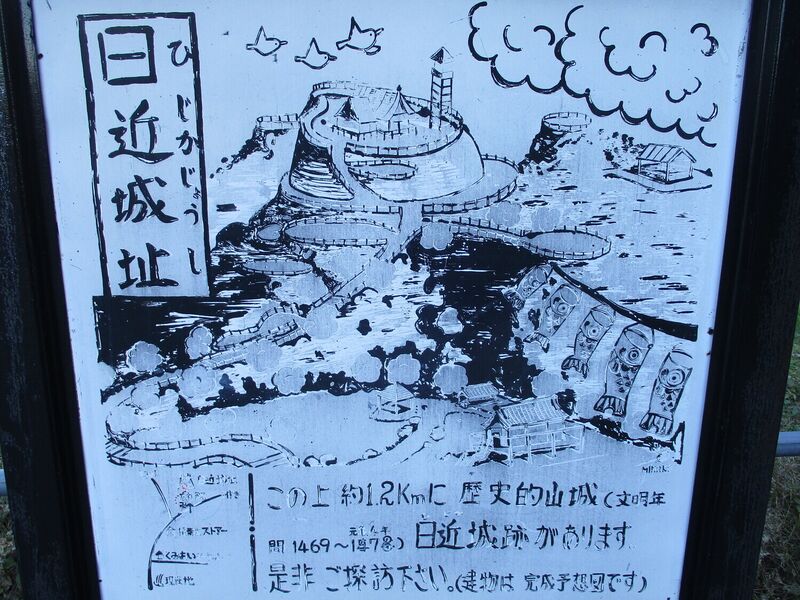 日近城址
ひじかじょうし
この上約1.2Kmに歴史的山城(文明年
間1469~1487)日近城跡があります。
是非ご探訪下さい。(建物は完成予想図です)
ストアー
くみよい
現在地